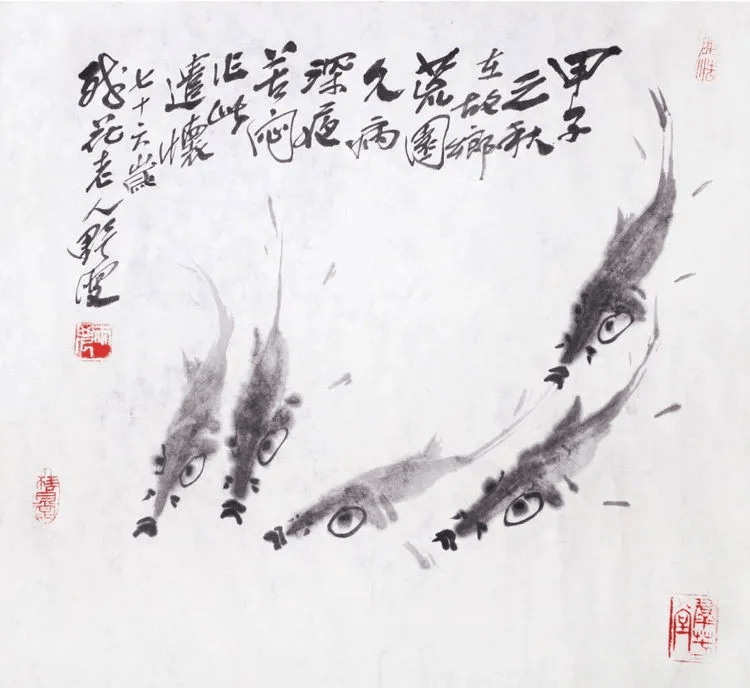 甲子
之秋
在故鄉
荒園
久病
深夜
苦悶
作此
遣懷
七十六歲
殘花老人